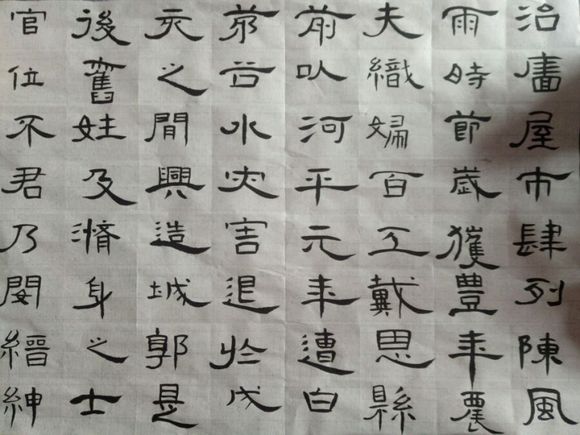 治廧屋市肆列陳風
雨時節歲獲豐年農
夫織婦百工戴恩縣
前以河平元年遭白
茅谷水灾害退於戌
亥之閒興造城郭是
後舊姓及脩身之士
官位不君乃閔縉紳